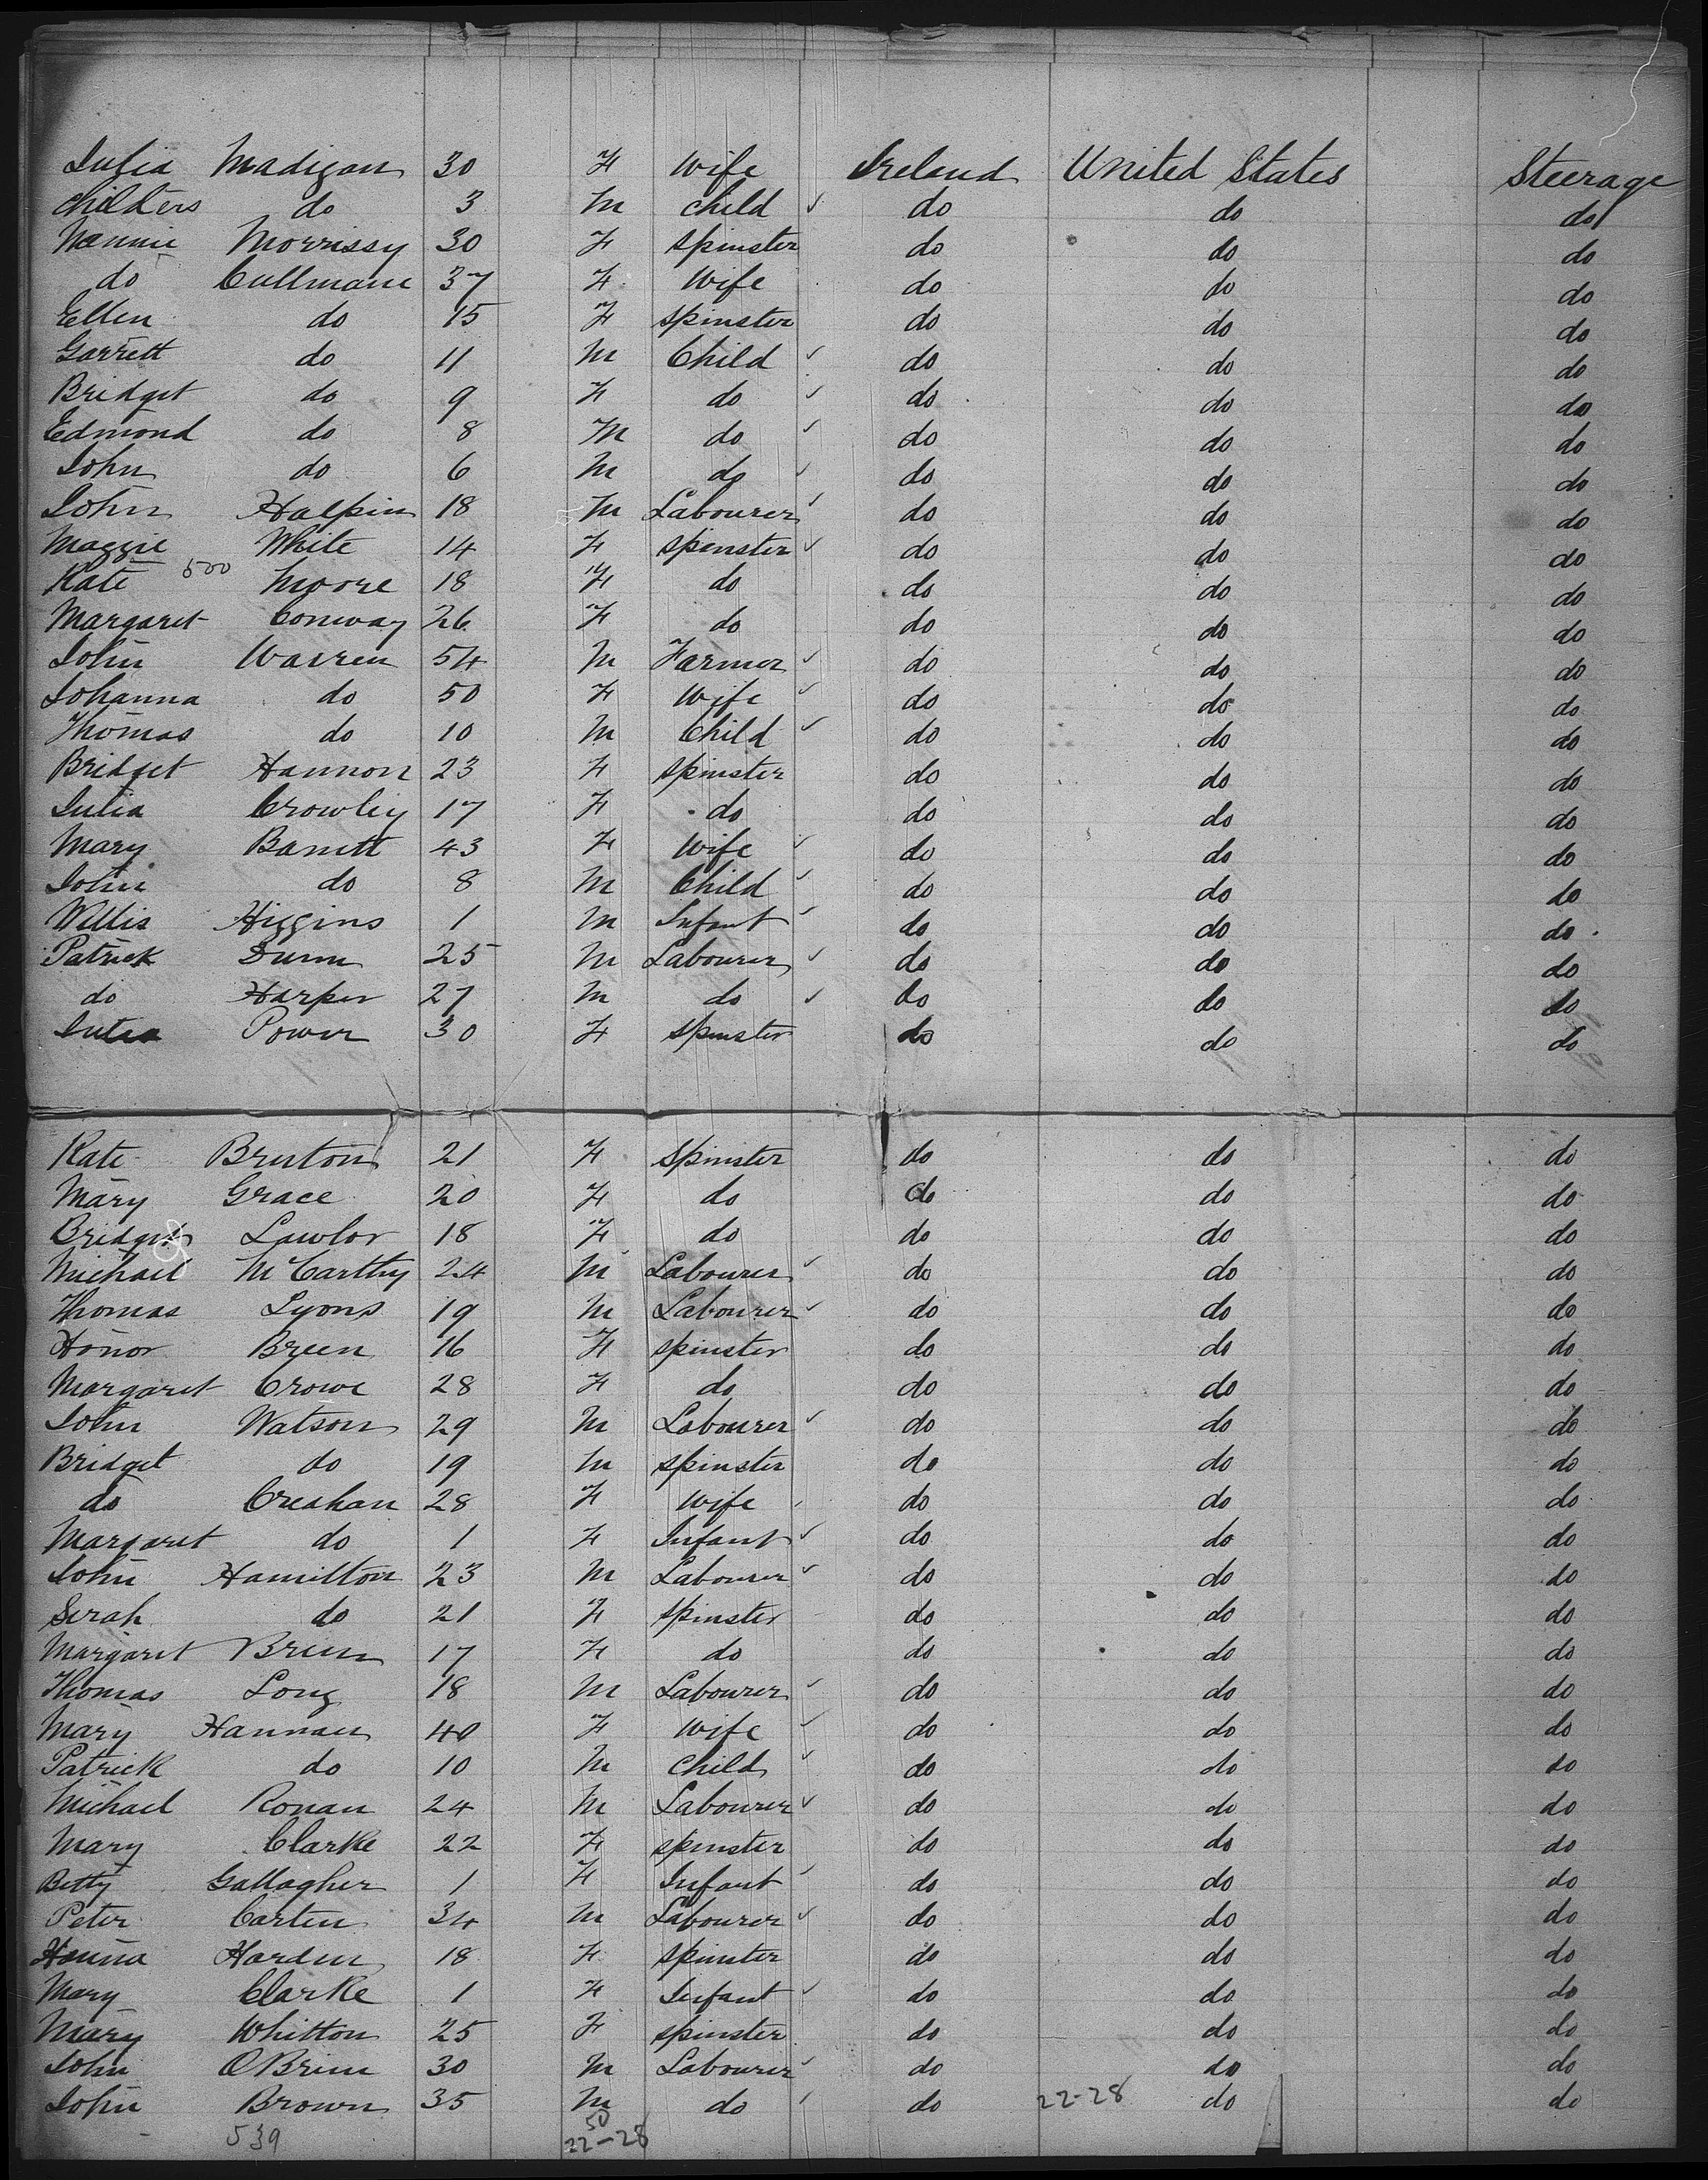 Julia Madigan 30 F Wife Ireland United States Steerage
Childers do 3 M child ✓ do do do
Nannie Morrissy 30 F spinster do do do
do Cullinane 37 F Wife do do do
Ellen do 15 F spinster do do do
Garrett do 11 M Child ✓ do do do
Bridget do 9 F do ✓ do do do
Edmond do 8 M do ✓ do do do
John do 6 M do ✓ do do do
John Halpin 18 M Labourer ✓ do do do
Maggie White 14 F spinster ✓ do do do
500
Kate Moore 18 F do do do do
Margaret Conway 26 F do do do do
John Warren 54 M Farmer ✓ do do do
Johanna do 50 F Wife ✓ do do do
Thomas do 10 M Child ✓ do do do
Bridget Hannon 23 F spinster do do do
Julia Crowley 17 F do do do do
Mary Barrett 43 F Wife ✓ do do do
John do 8 M Child ✓ do do do
Willis Higgins 1 M Infant ✓ do do do
Patrick Dunn 25 M Labourer ✓ do do do
do Harper 27 M do ✓ do do do
Julia Power 30 F spinster do do do
Kate Bruton 21 F Spinster do do do
Mary Grace 20 F do do do do
Bridget Lawlor 18 F do do do do
Michael McCarthy 24 M Labourer ✓ do do do
Thomas Lyons 19 M Labourer ✓ do do do
Honor Breen 16 F spinster do do do
Margaret Crowe 28 F do do do do
John Watson 29 M Labourer ✓ do do do
Bridget do 19 M spinster do do do
do Creahan 28 F Wife do do do
Margaret do 1 F Infant ✓ do do do
John Hamilton 23 M Labourer ✓ do do do
Sarah do 21 F spinster do do do
Margaret Breen 17 F do do do do
Thomas Long 18 M Labourer ✓ do do do
Mary Hannan 40 F Wife ✓ do do do
Patrick do 10 M Child ✓ do do do
Michael Ronan 24 M Labourer ✓ do do do
Mary Clarke 22 F spinster do do do
Betty Gallagher 1 F Infant ✓ do do do
Peter Carten 34 M Labourer ✓ do do do
Hanna Harden 18 F spinster do do do
Mary Clarke 1 F Infant ✓ do do do
Mary Whitton 25 F spinster do do do
John OBrien 30 M Labourer ✓ do do do
John Brown 35 M do ✓ do 22-28 do do
539 50
22-28